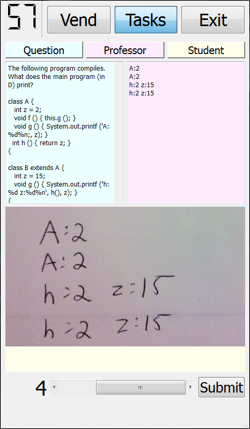 57
Vend Tasks Exit
Question Professor Student
The following program compiles.
What does the main program (in
D) print?
class A {
int z = 2;
void f () { this.g (); }
void g () { System.out.printf ('A:
%d%n;, z); }
int h () { return z; }
{
class B extends A {
int z = 15;
void g () { System.out.printf ('h:
%d z:%d%n', h(), z); }
{
A:2
A:2
h:2 z:15
h:2 z:15
A:2
A:2
h:2 z:15
h:2 z:15
4
Submit